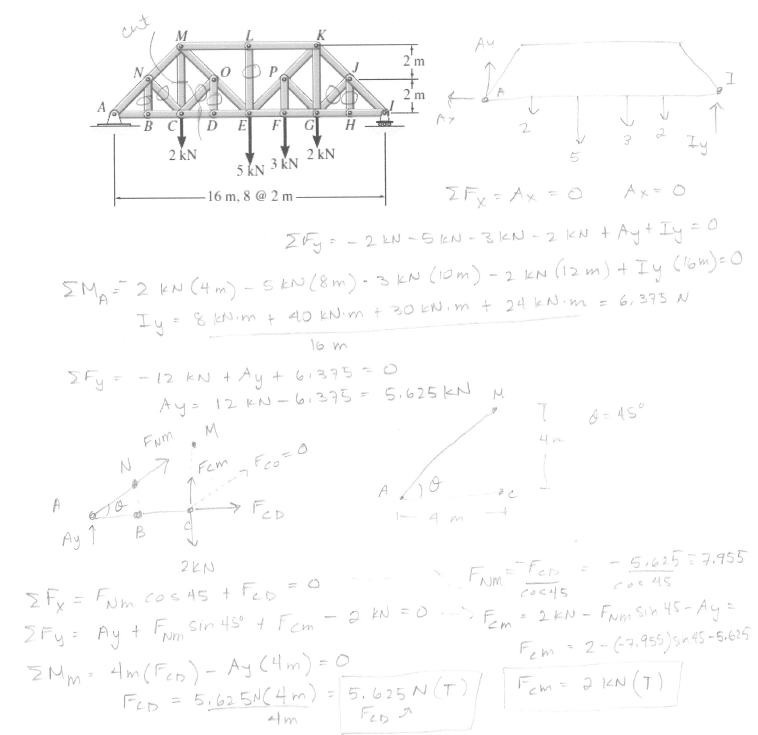 cut
M L K
N O P J
A I
B C D E F G H
2 m
2 m
2 kN
5 kN 3 kN 2 kN
16 m, 8 @ 2 m
Ay
A
Ax
2
5
3
2
I
Iy
ΣFx = Ax = 0 Ax = 0
ΣFy = -2 kN - 5 kN - 3 kN - 2 kN + Ay + Iy = 0
ΣMA = -2 kN (4 m) - 5 kN (8 m) - 3 kN (10 m) - 2 kN (12 m) + Iy (16 m) = 0
Iy = 8 kN·m + 40 kN·m + 30 kN·m + 24 kN·m = 6.375 N
16 m
ΣFy = -12 kN + Ay + 6.375 = 0
Ay = 12 kN - 6.375 = 5.625 kN
FNM
M
N
FCM
FCO = 0
A
θ
B
C
FCD
Ay
2 kN
M
4 m
θ = 45°
A
θ
C
4 m
ΣFx = FNM cos 45 + FCD = 0
FNM = -FCD / cos 45 = -5.625 / cos 45 = 7.955
ΣFy = Ay + FNM sin 45° + FCM - 2 kN = 0
FCM = 2 kN - FNM sin 45 - Ay =
FCM = 2 - (-7.955) sin 45 - 5.625
ΣMM = 4m (FCD) - Ay (4 m) = 0
FCD = 5.625 N (4 m) / 4 m = 5.625 N (T)
FCD
FCM = 2 kN (T)